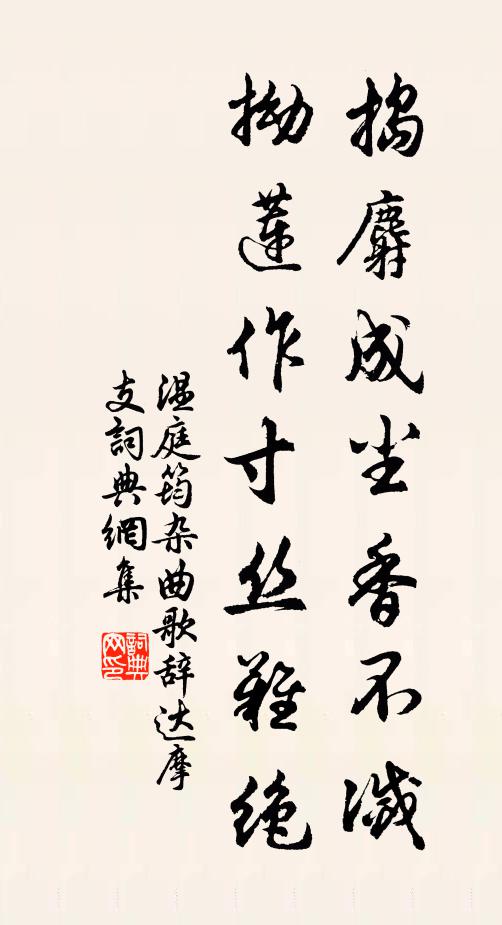 捣麝成尘香不灭
拗莲作寸丝难绝
温庭筠杂曲歌辞达摩
支詞典網集
詞典
网印